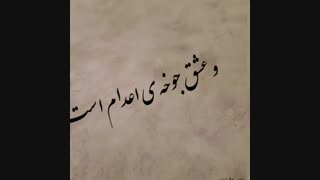 و عشق جوخه ی اعدام است